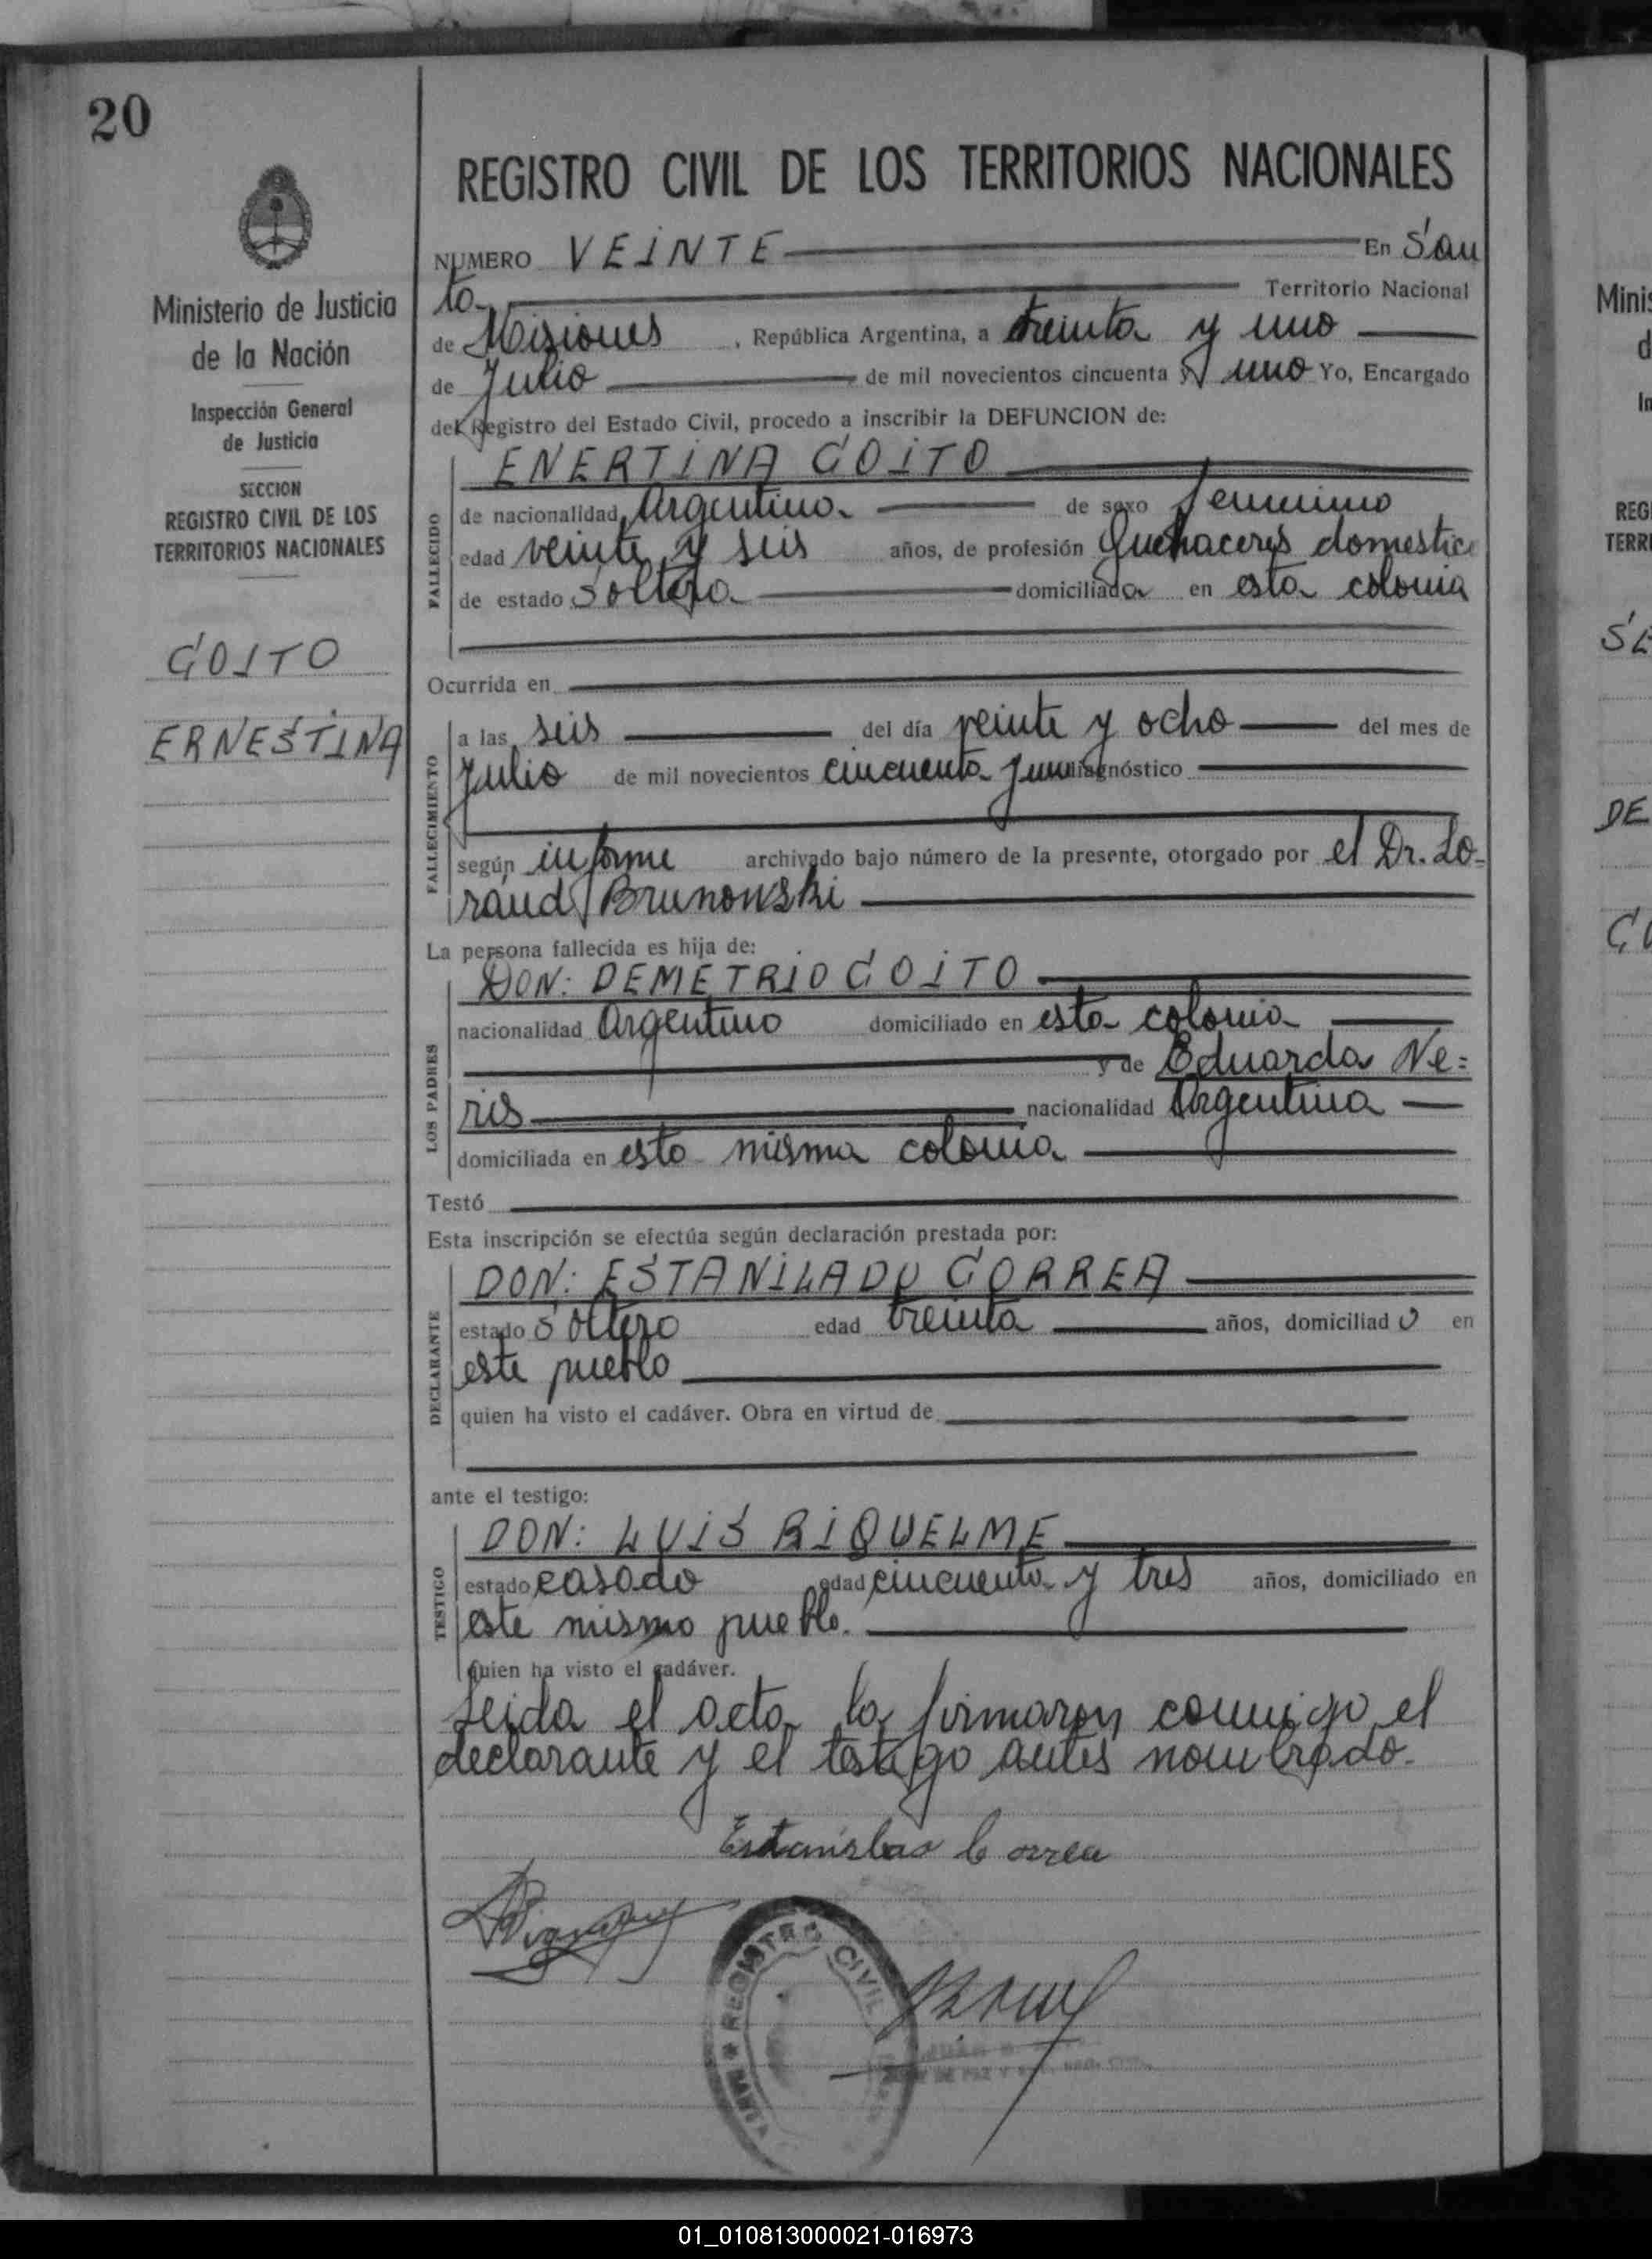 20
REGISTRO CIVIL DE LOS TERRITORIOS NACIONALES
Ministerio de Justicia
de la Nación
Inspección General
de Justicia
SECCION
REGISTRO CIVIL DE LOS
TERRITORIOS NACIONALES
GOITO
ERNESTINA
NUMERO VEINTE En San
to Territorio Nacional
de Misiones , República Argentina, a treinta y uno
de Julio de mil novecientos cincuenta y uno Yo, Encargado
del Registro del Estado Civil, procedo a inscribir la DEFUNCION de:
FALLECIDO
ENERTINA GOITO
de nacionalidad Argentina de sexo femenino
edad veinte y seis años, de profesión Quehaceres domestic
de estado Soltera domiciliada en esta colonia
Ocurrida en
FALLECIMIENTO
a las seis del día veinte y ocho del mes de
Julio de mil novecientos cincuenta y uno diagnóstico
según informe archivado bajo número de la presente, otorgado por el Dr. Lo-
rand Brunowski
La persona fallecida es hija de:
LOS PADRES
DON: DEMETRIO GOITO
nacionalidad Argentino domiciliado en esta colonia
y de Eduarda Ne=
ris nacionalidad Argentina
domiciliada en esta misma colonia
Testó
Esta inscripción se efectúa según declaración prestada por:
DECLARANTE
DON: ESTANILADO CORREA
estado Soltero edad treinta años, domiciliado en
este pueblo
quien ha visto el cadáver. Obra en virtud de
ante el testigo:
TESTIGO
DON: LUIS RIQUELME
estado casado edad cincuenta y tres años, domiciliado en
este mismo pueblo.
quien ha visto el cadáver.
Leida el acta la firmaron conmigo el
declarante y el testigo antes nombrado.
Estanislao Correa
REGISTRO CIVIL
JUAN
DE PAZ Y
Minis
d
In
REG
TERR
SE
DE
01_010813000021-016973